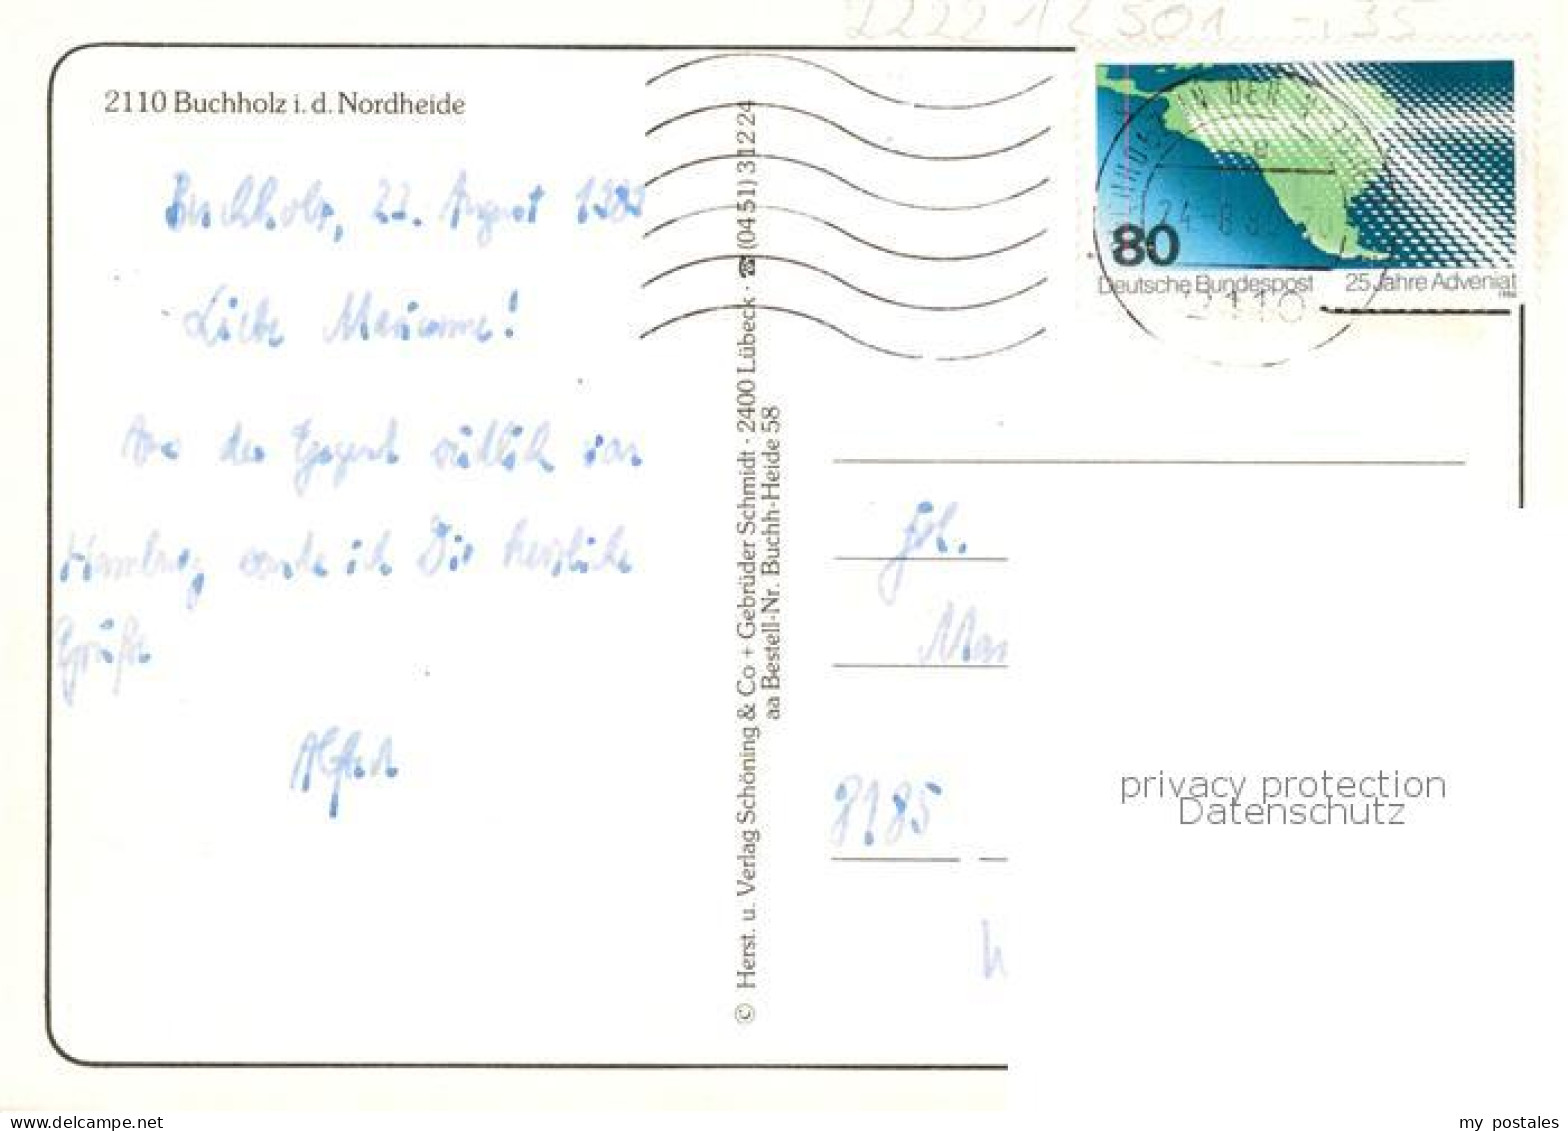 2222 12501 -,35
2110 Buchholz i. d. Nordheide
Buchholz, 22. August 1989
Liebe Marianne!
Aus der Gegend südlich von
Hamburg sende ich Dir herzliche
Grüße
Alfred
© Herst. u. Verlag Schöning & Co + Gebrüder Schmidt · 2400 Lübeck · ☎ (04 51) 3 12 24
aa Bestell-Nr. Buchh-Heide 58
80
Deutsche Bundespost 25 Jahre Adveniat
1986
IN DER
24.-8.8
2110
Frl.
Mar
8185
privacy protection
Datenschutz
www.delcampe.net
my_postales